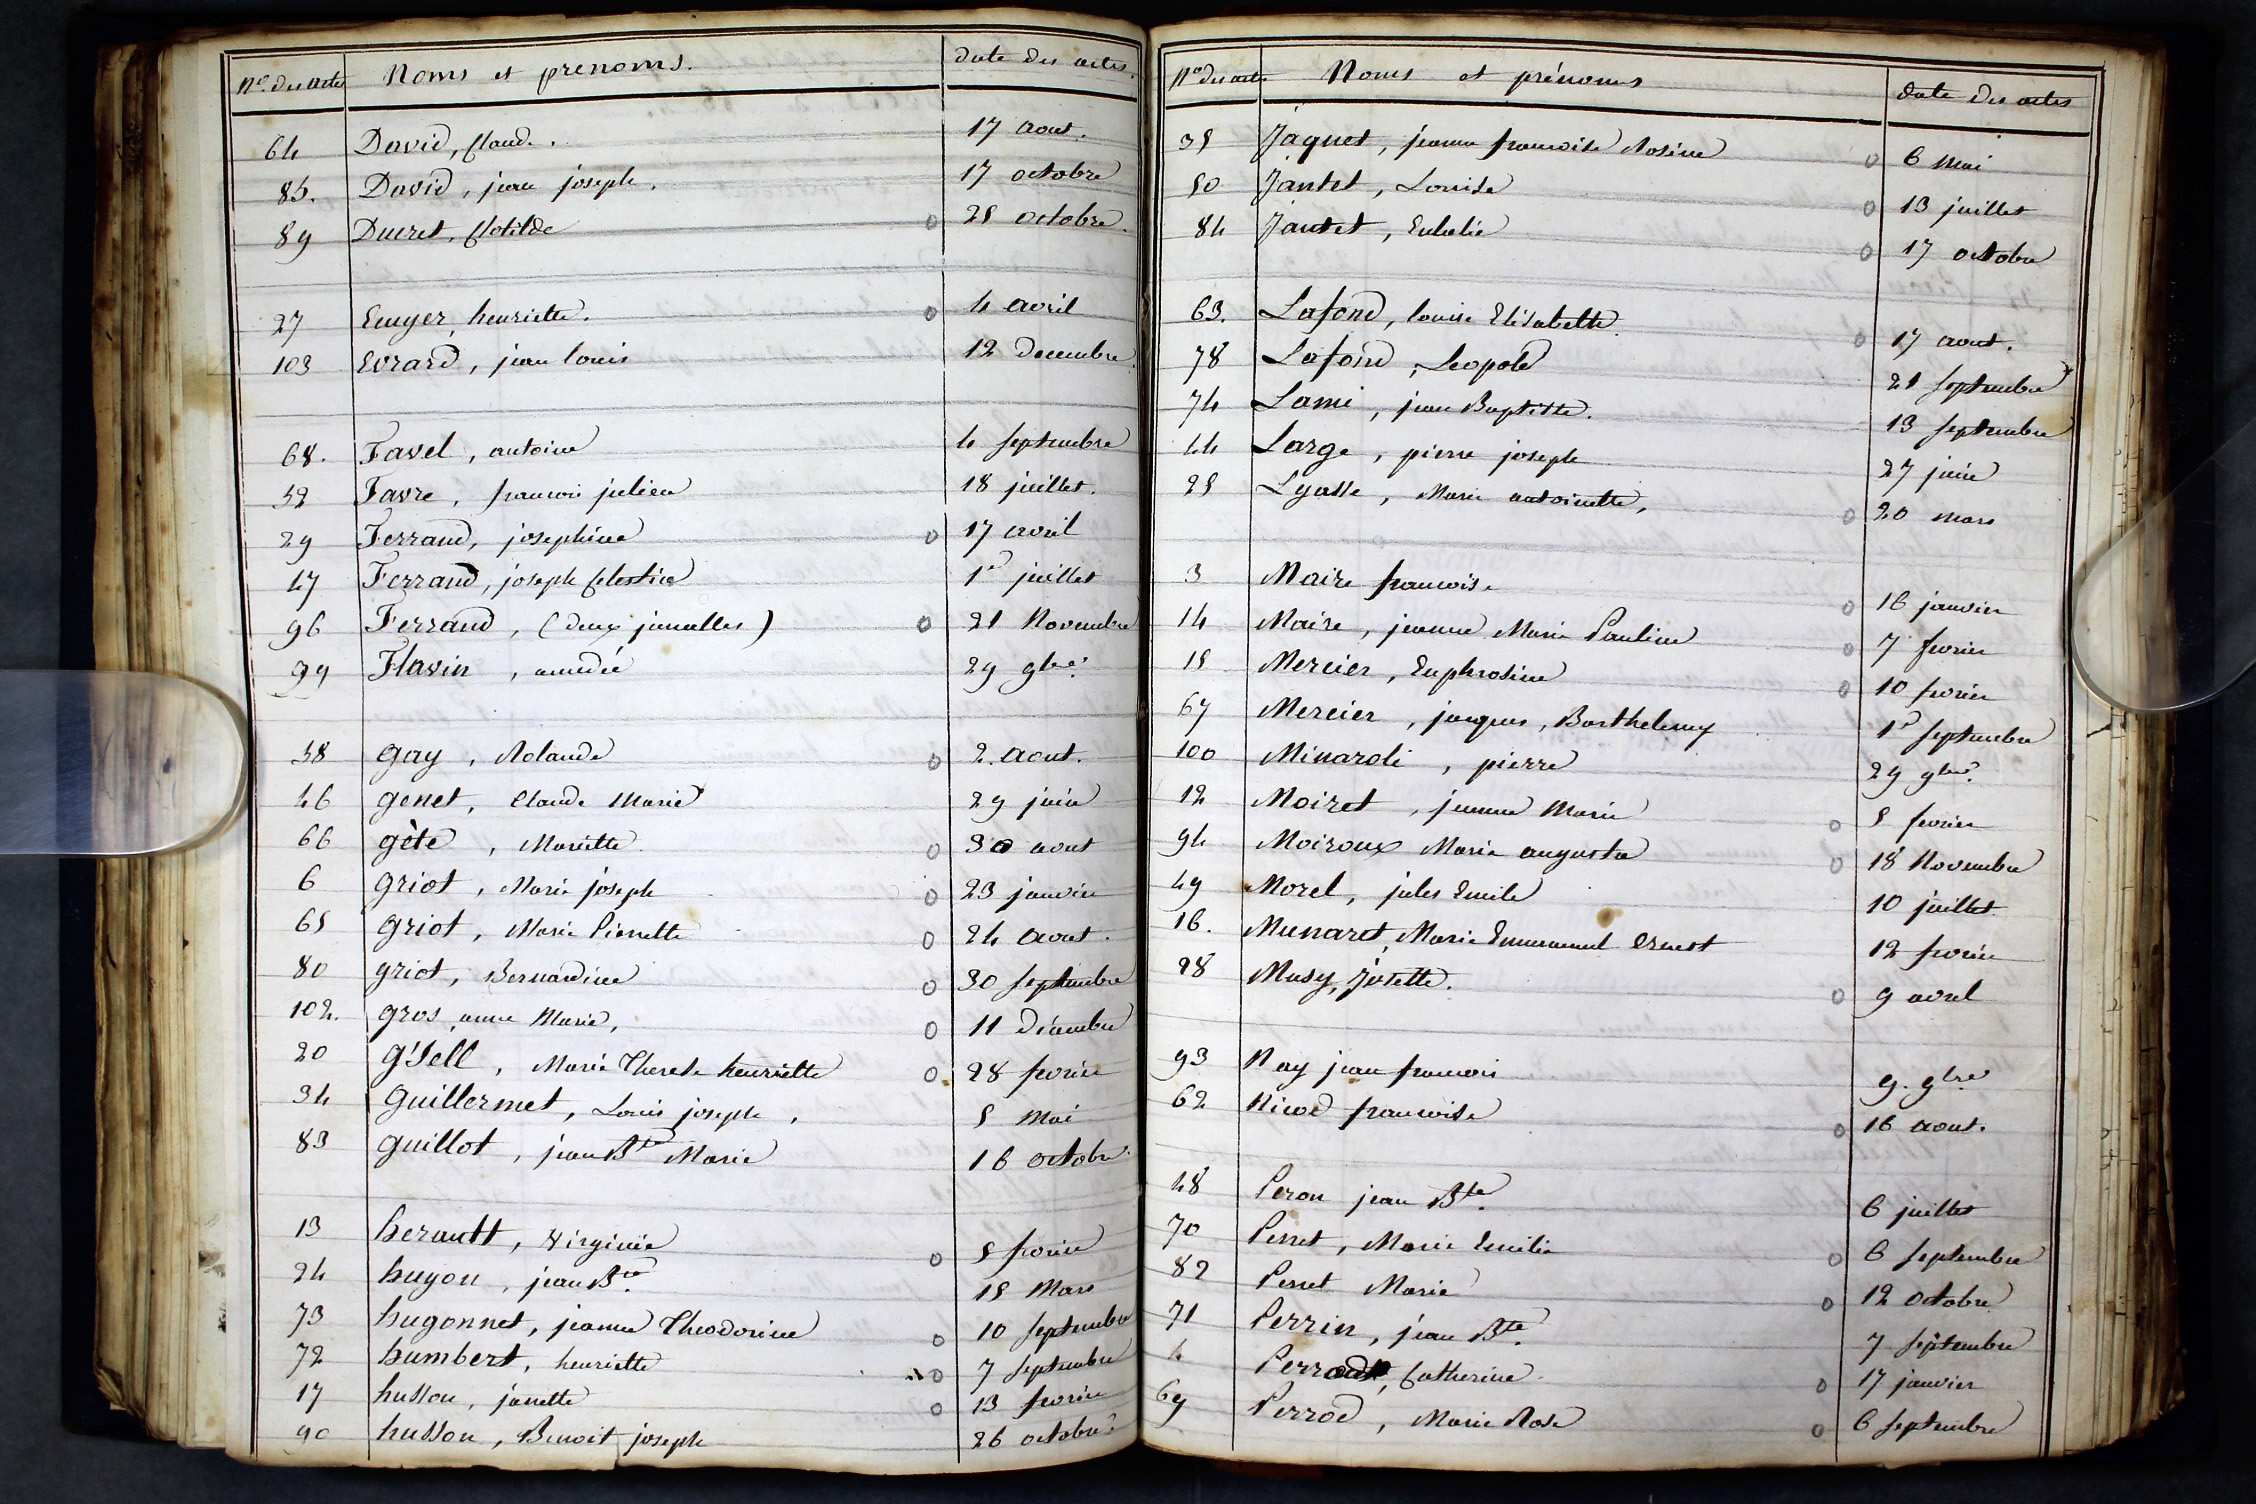 No. des actes Noms et prenoms. date des actes.
64 David, Claude. 17 aout.
85. David, jean joseph. 17 octobre
89 Ducret, Clotilde 0 25 octobre.
27 Emyer, henriette. 0 4 avril
103 Evrard, jean louis 12 decembre
68. Favel, antoine 4 septembre
52 Favre, francois julien 18 juillet.
29 Ferrand, josephine 0 17 avril
47 Ferrand, joseph Celestin 1er juillet
96 Ferrand, (deux jumelles) 0 21 Novembre
99 Flavin, amedée 29 9bre.
58 gay, Rolande 0 2. aout.
46 genet, Claude Marie 29 juin
66 gète, Mariette 0 30 aout
6 griot, Marie joseph 0 23 janvier
65 griot, Marie Pierrette 0 24 aout.
80 griot, Bernardine 0 30 septembre
102. gros, anne Marie, 0 11 décembre
20 g'sell, Marie Therese henriette 0 28 fevrier
34 guillermet, Louis joseph, 5 Mai
83 guillot, jean Bte Marie 16 octobre.
13 herautt, Virginie 0 5 fevrier
24 hugon, jean Bte. 15 Mars
73 hugonnet, jeanne Theodorine 0 10 septembre
72 humbert, henriette 0 7 septembre
17 husson, janette 0 13 fevrier
90 husson, Benoit joseph 26 octobre
No. des actes Noms et prénoms date des actes
35 Jaquet, jeanne francoise Rosine 0 6 mai
50 Jantet, Louise 0 13 juillet
84 Jantet, Eulalie 0 17 octobre
63. Lafond, louise Elisabette 0 17 aout.
78 Lafond, Leopold 21 septembre
74 Lami, jean Baptiste. 13 septembre
44 Large, pierre joseph 27 juin
25 Lyasse, Marie antoinette, 0 20 mars
3 Maire francoise 0 16 janvier
14 Maire, jeanne Marie Pauline 0 7 fevrier
15 Mercier, Euphrosine 0 10 fevrier
67 Mercier, jacques, Barthelemy 1er septembre
100 Minaroli, pierre 29 9bre.
12 Moiret, jeanne Marie 0 5 fevrier
94 Moiroux Marie augusta 0 18 Novembre
49 Morel, jules Emile 10 juillet
16. Munaret, Marie Emmanuel Ernest 12 fevrier
28 Musy, Josette. 0 9 avril
93 Nay jean francois 9. 9bre
62 Nicod francoise 0 16 aout.
48 Peron jean Bte. 6 juillet
70 Perret, Marie Emilie 0 6 septembre
82 Perret Marie 0 12 octobre
71 Perrin, jean Bte. 7 septembre
4 Catherine 0 17 janvier
69 Perrod, Marie Rose 0 6 septembre